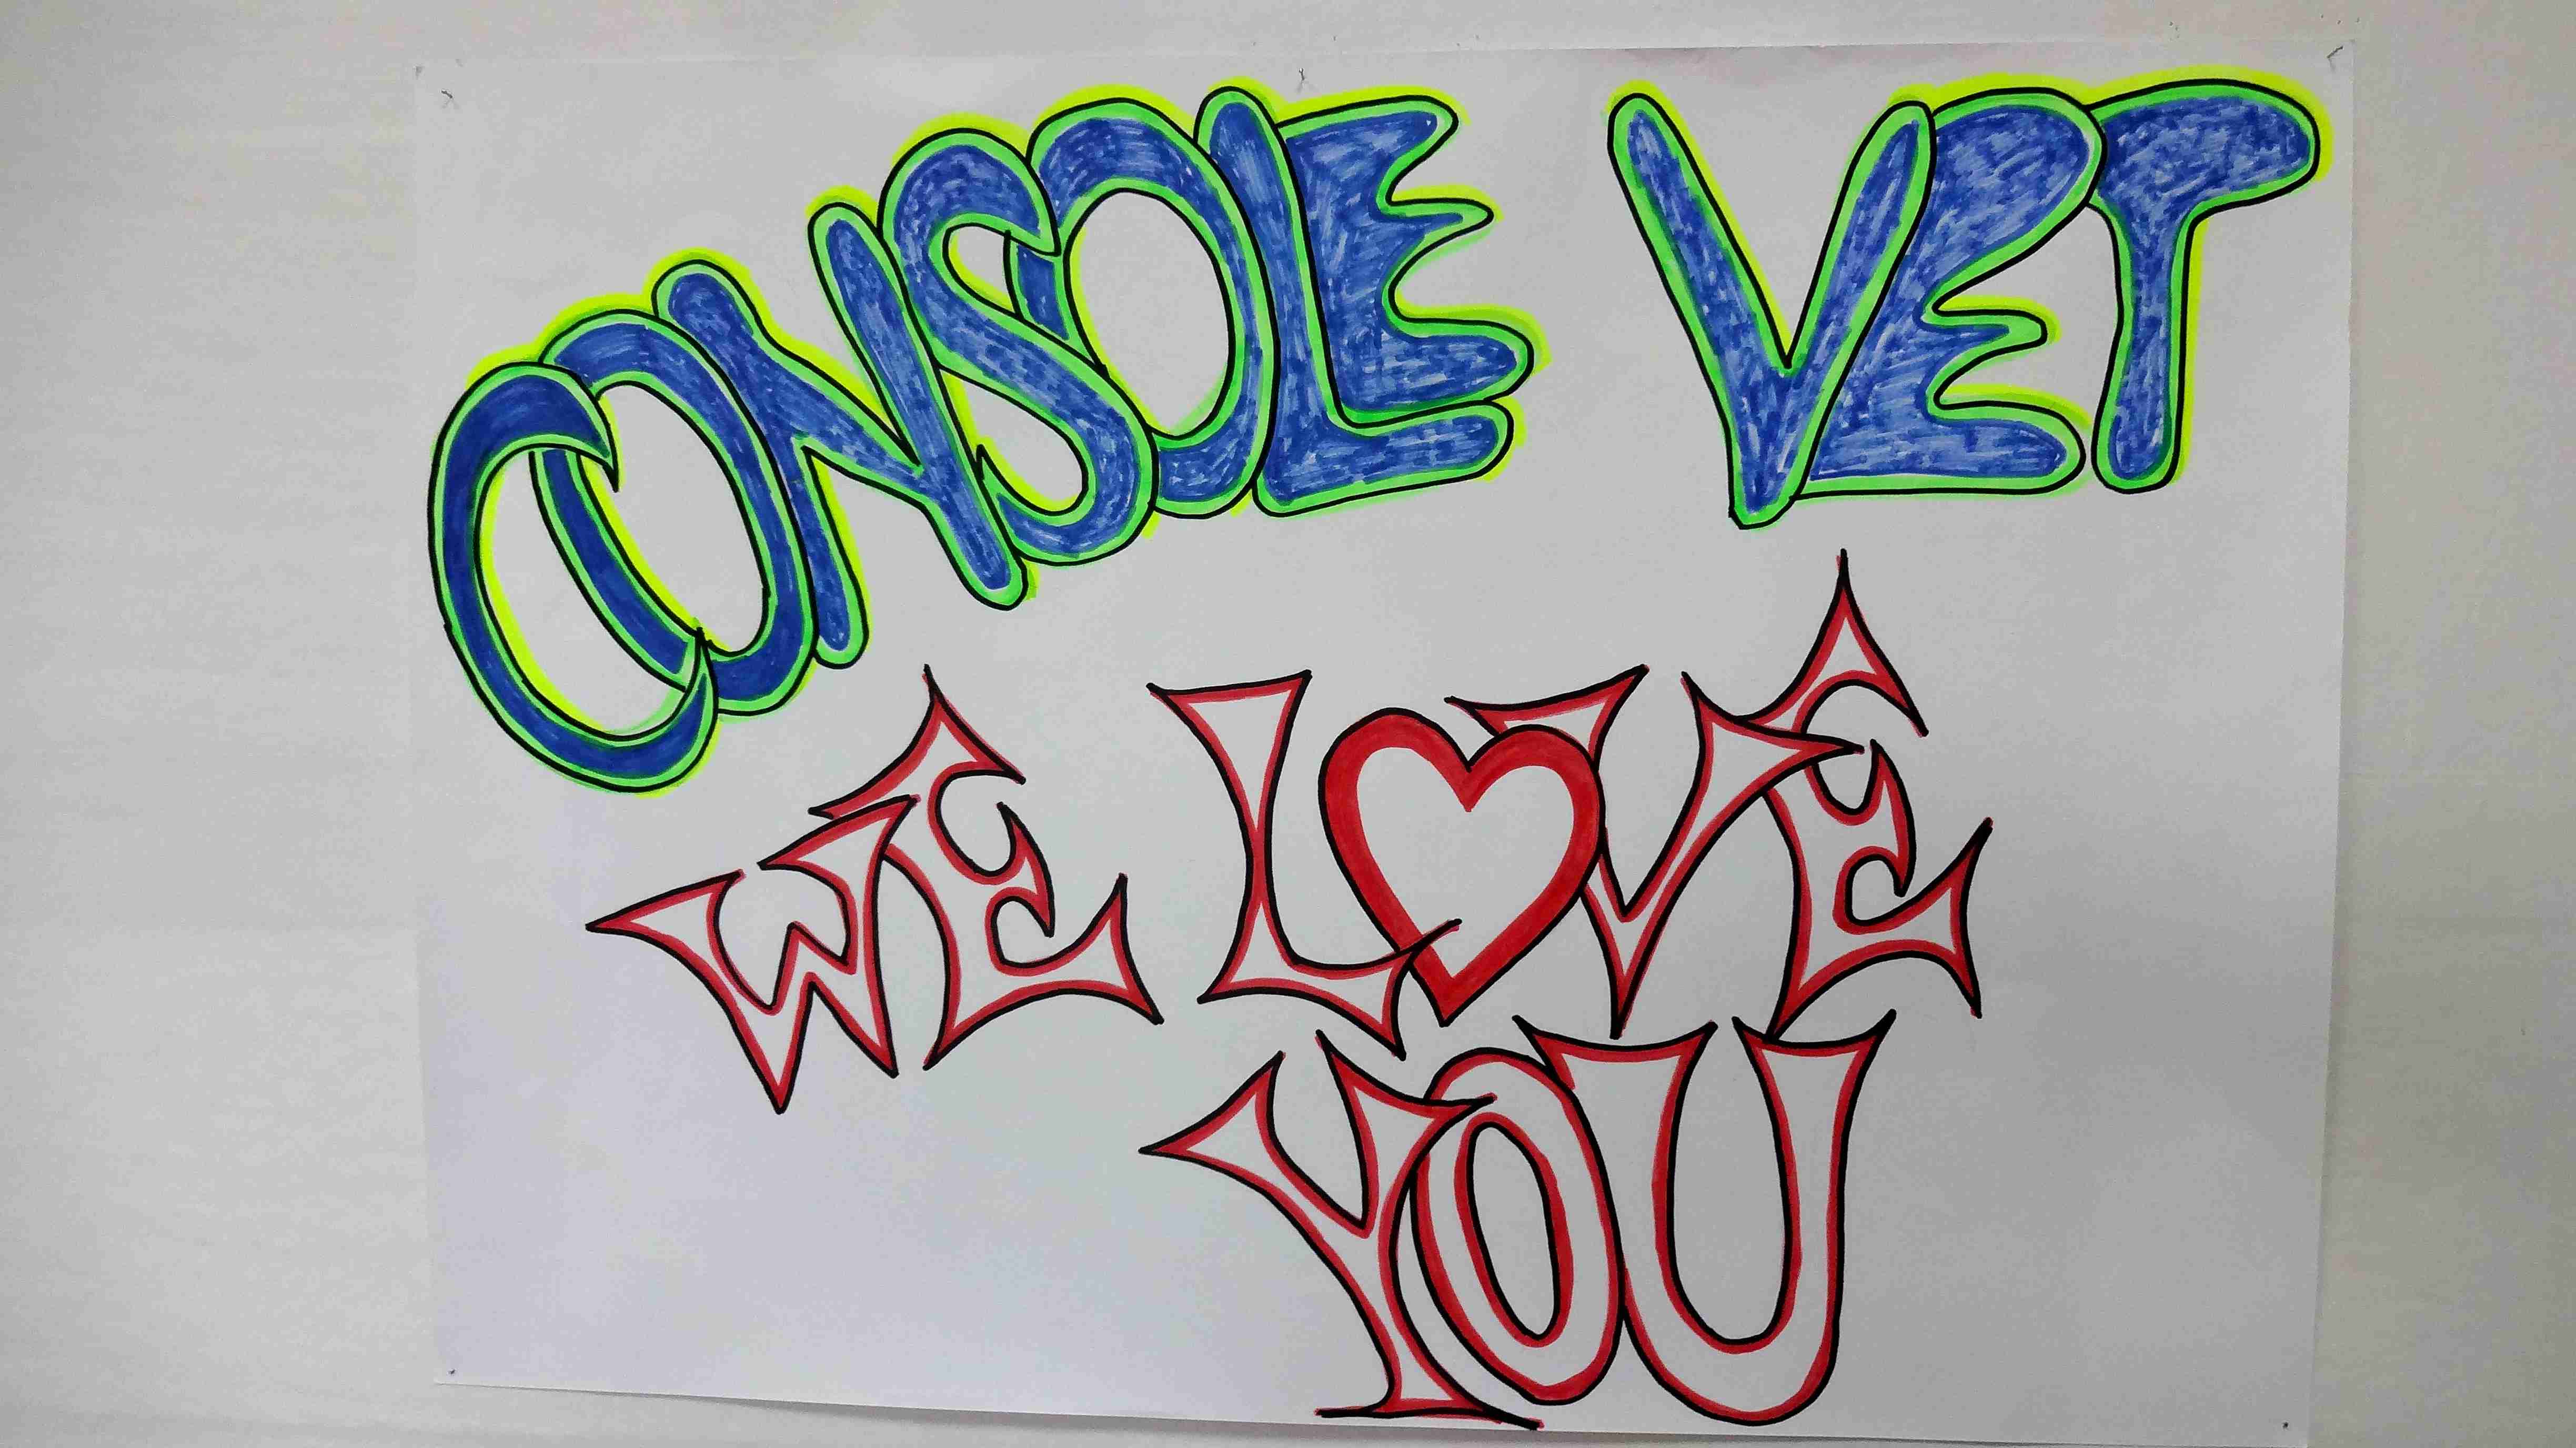 CONSOLE VET
WE LOVE
YOU